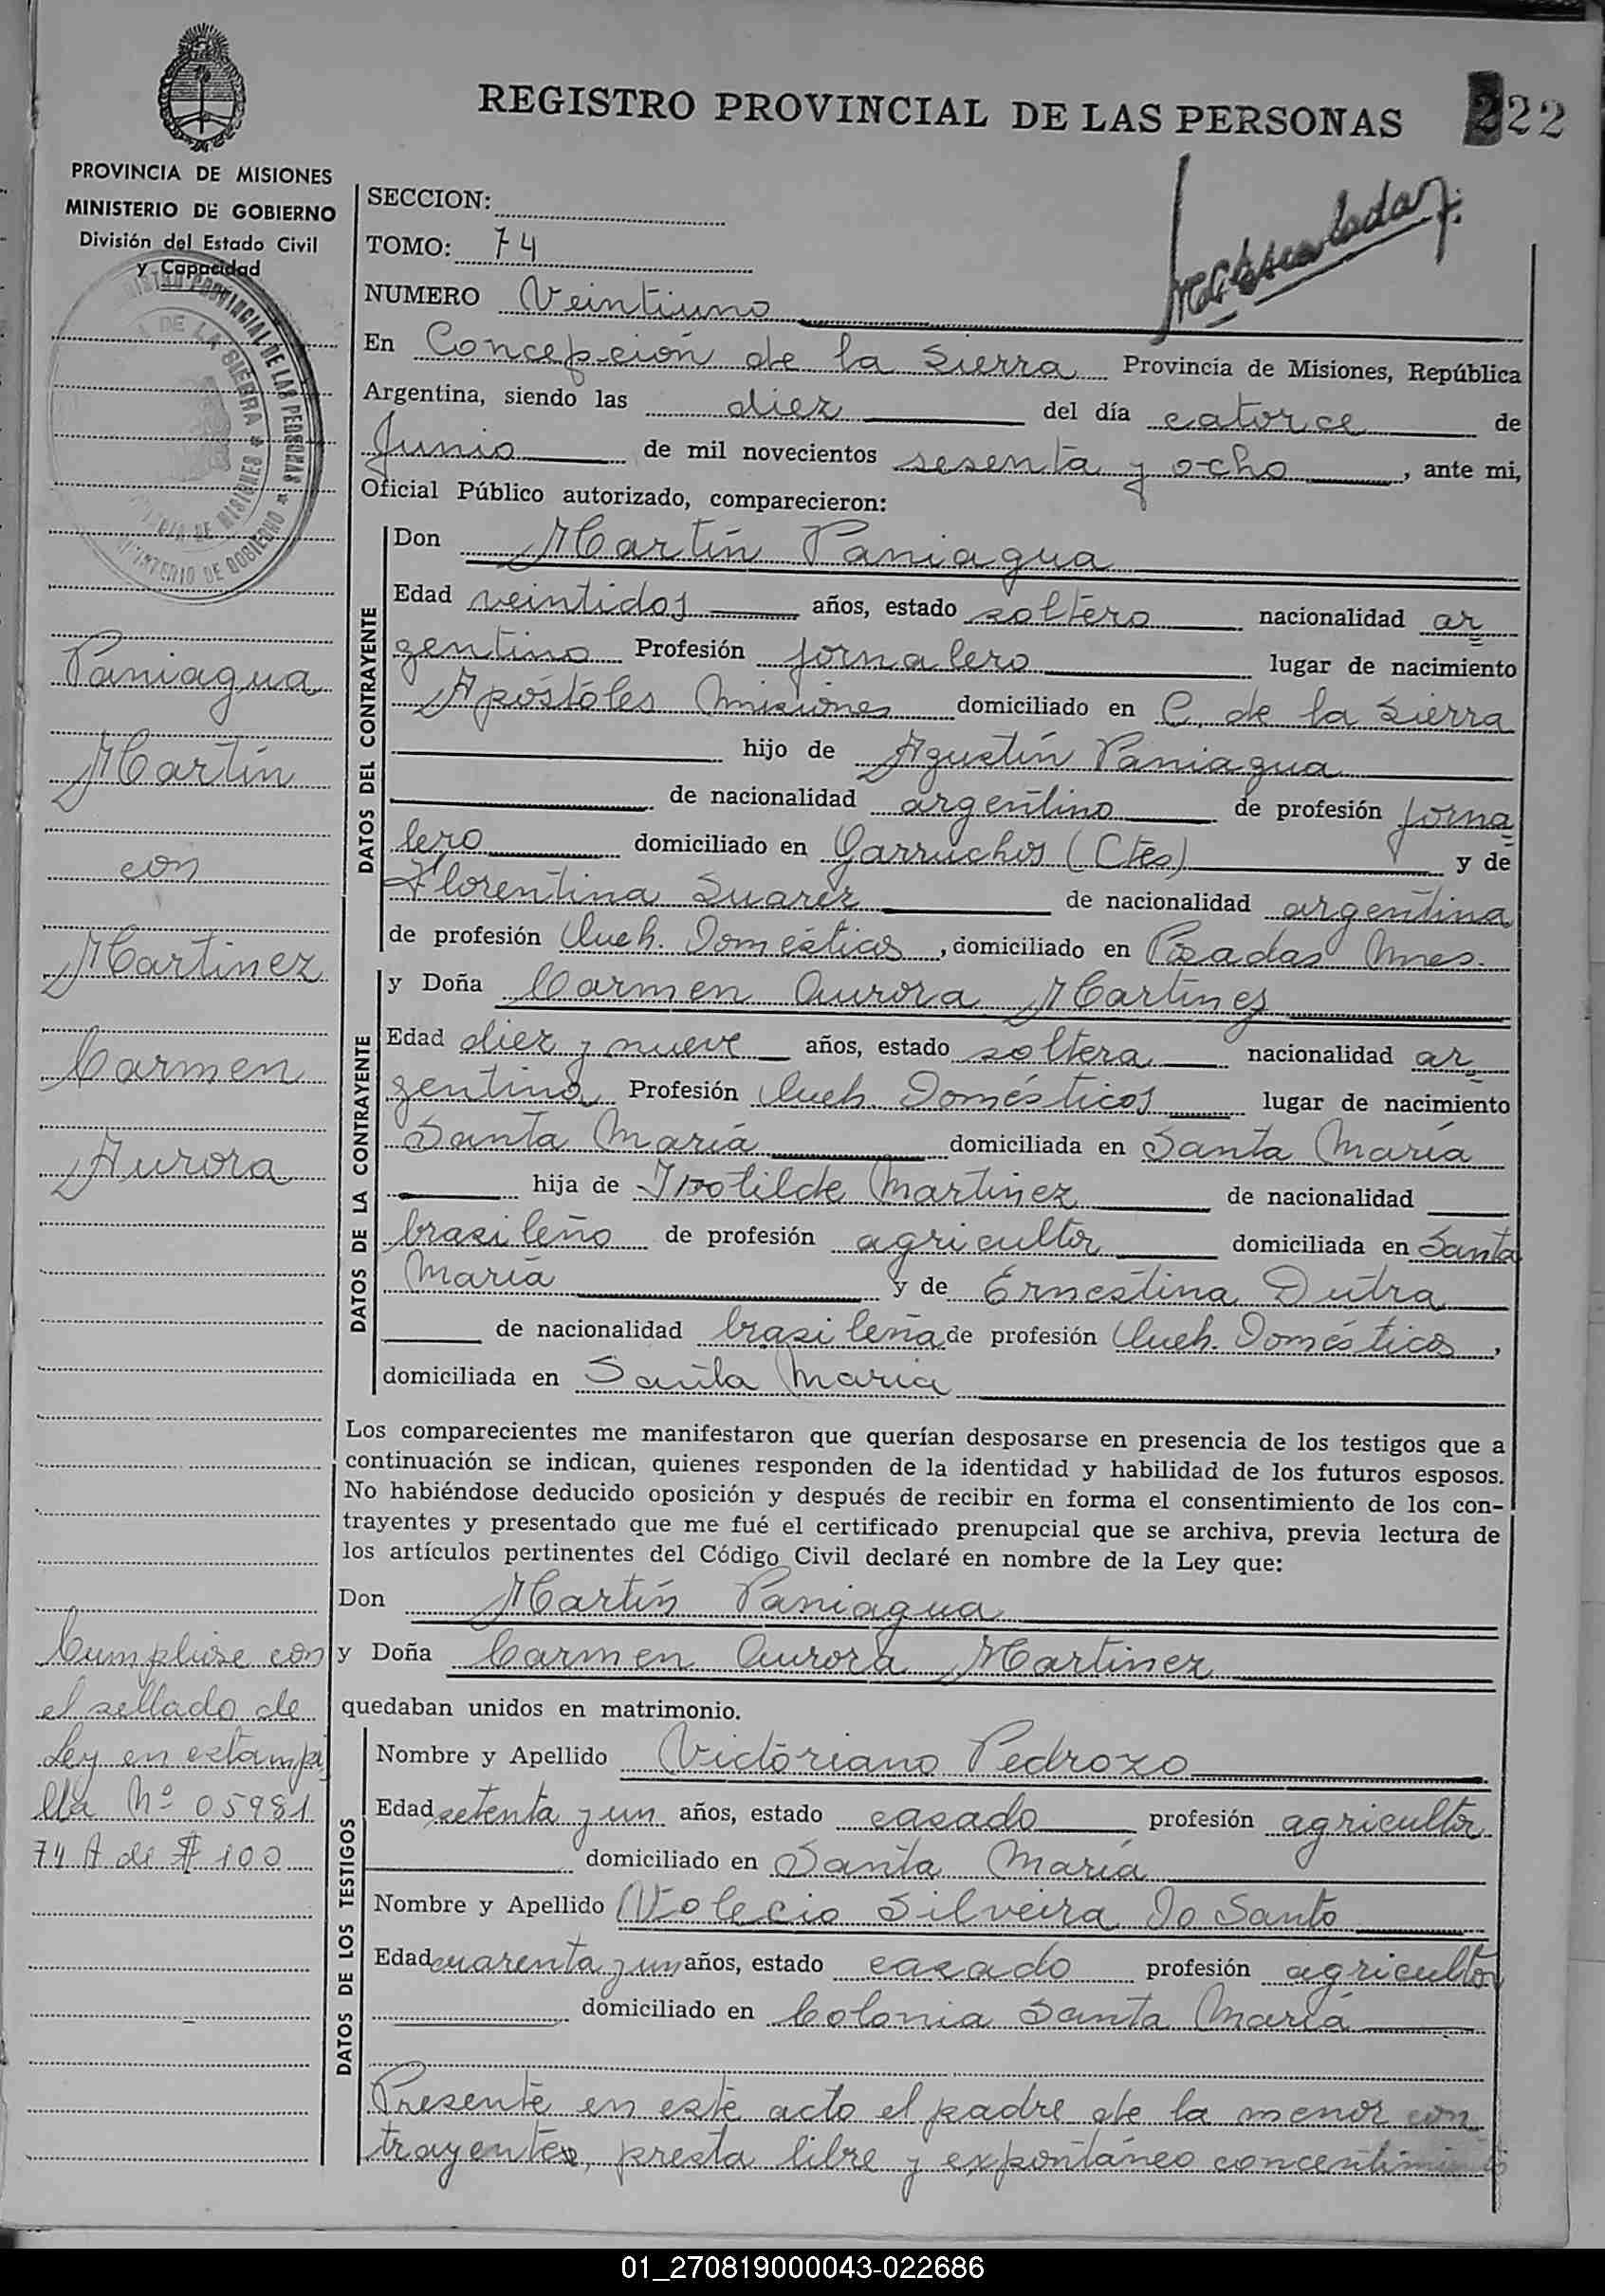 REGISTRO PROVINCIAL DE LAS PERSONAS
222
PROVINCIA DE MISIONES
MINISTERIO DE GOBIERNO
División del Estado Civil
y Capacidad
SECCION:
TOMO: 74
NUMERO Veintiuno
En Concepción de la Sierra Provincia de Misiones, República
Argentina, siendo las diez del día catorce de
Junio de mil novecientos sesenta y ocho, ante mi,
Oficial Público autorizado, comparecieron:
DATOS DEL CONTRAYENTE
Don Martín Paniagua
Edad veintidos años, estado soltero nacionalidad ar
gentino Profesión jornalero lugar de nacimiento
Apóstoles Misiones domiciliado en C. de la Sierra
hijo de Agustín Paniagua
de nacionalidad argentino de profesión jorna
lero domiciliado en Garruchos (Ctes) y de
Florentina Suarez de nacionalidad argentina
de profesión Queh. Domésticos, domiciliado en Posadas Mnes.
DATOS DE LA CONTRAYENTE
y Doña Carmen Aurora Martinez
Edad diez y nueve años, estado soltera nacionalidad ar
gentina Profesión Queh. Domésticos lugar de nacimiento
Santa María domiciliada en Santa María
hija de Isotilde Martinez de nacionalidad
brasileño de profesión agricultor domiciliada en Santa
María y de Ernestina Dutra
de nacionalidad brasileña de profesión Queh. Domésticos,
domiciliada en Santa María
Los comparecientes me manifestaron que querían desposarse en presencia de los testigos que a
continuación se indican, quienes responden de la identidad y habilidad de los futuros esposos.
No habiéndose deducido oposición y después de recibir en forma el consentimiento de los con-
trayentes y presentado que me fué el certificado prenupcial que se archiva, previa lectura de
los artículos pertinentes del Código Civil declaré en nombre de la Ley que:
Don Martín Paniagua
y Doña Carmen Aurora Martinez
quedaban unidos en matrimonio.
DATOS DE LOS TESTIGOS
Nombre y Apellido Victoriano Pedrozo
Edad setenta y un años, estado casado profesión agricultor
domiciliado en Santa María
Nombre y Apellido Silveira Do Santo
Edad cuarenta y un años, estado casado profesión agricultor
domiciliado en Colonia Santa María
Presente en este acto el padre de la menor con
trayente, presta libre y expontáneo concentimiento
Paniagua
Martín
con
Martinez
Carmen
Aurora
Cumplióse con
el sellado de
Ley en estampi
lla Nº 05981
74 A de $ 100
01_270819000043-022686